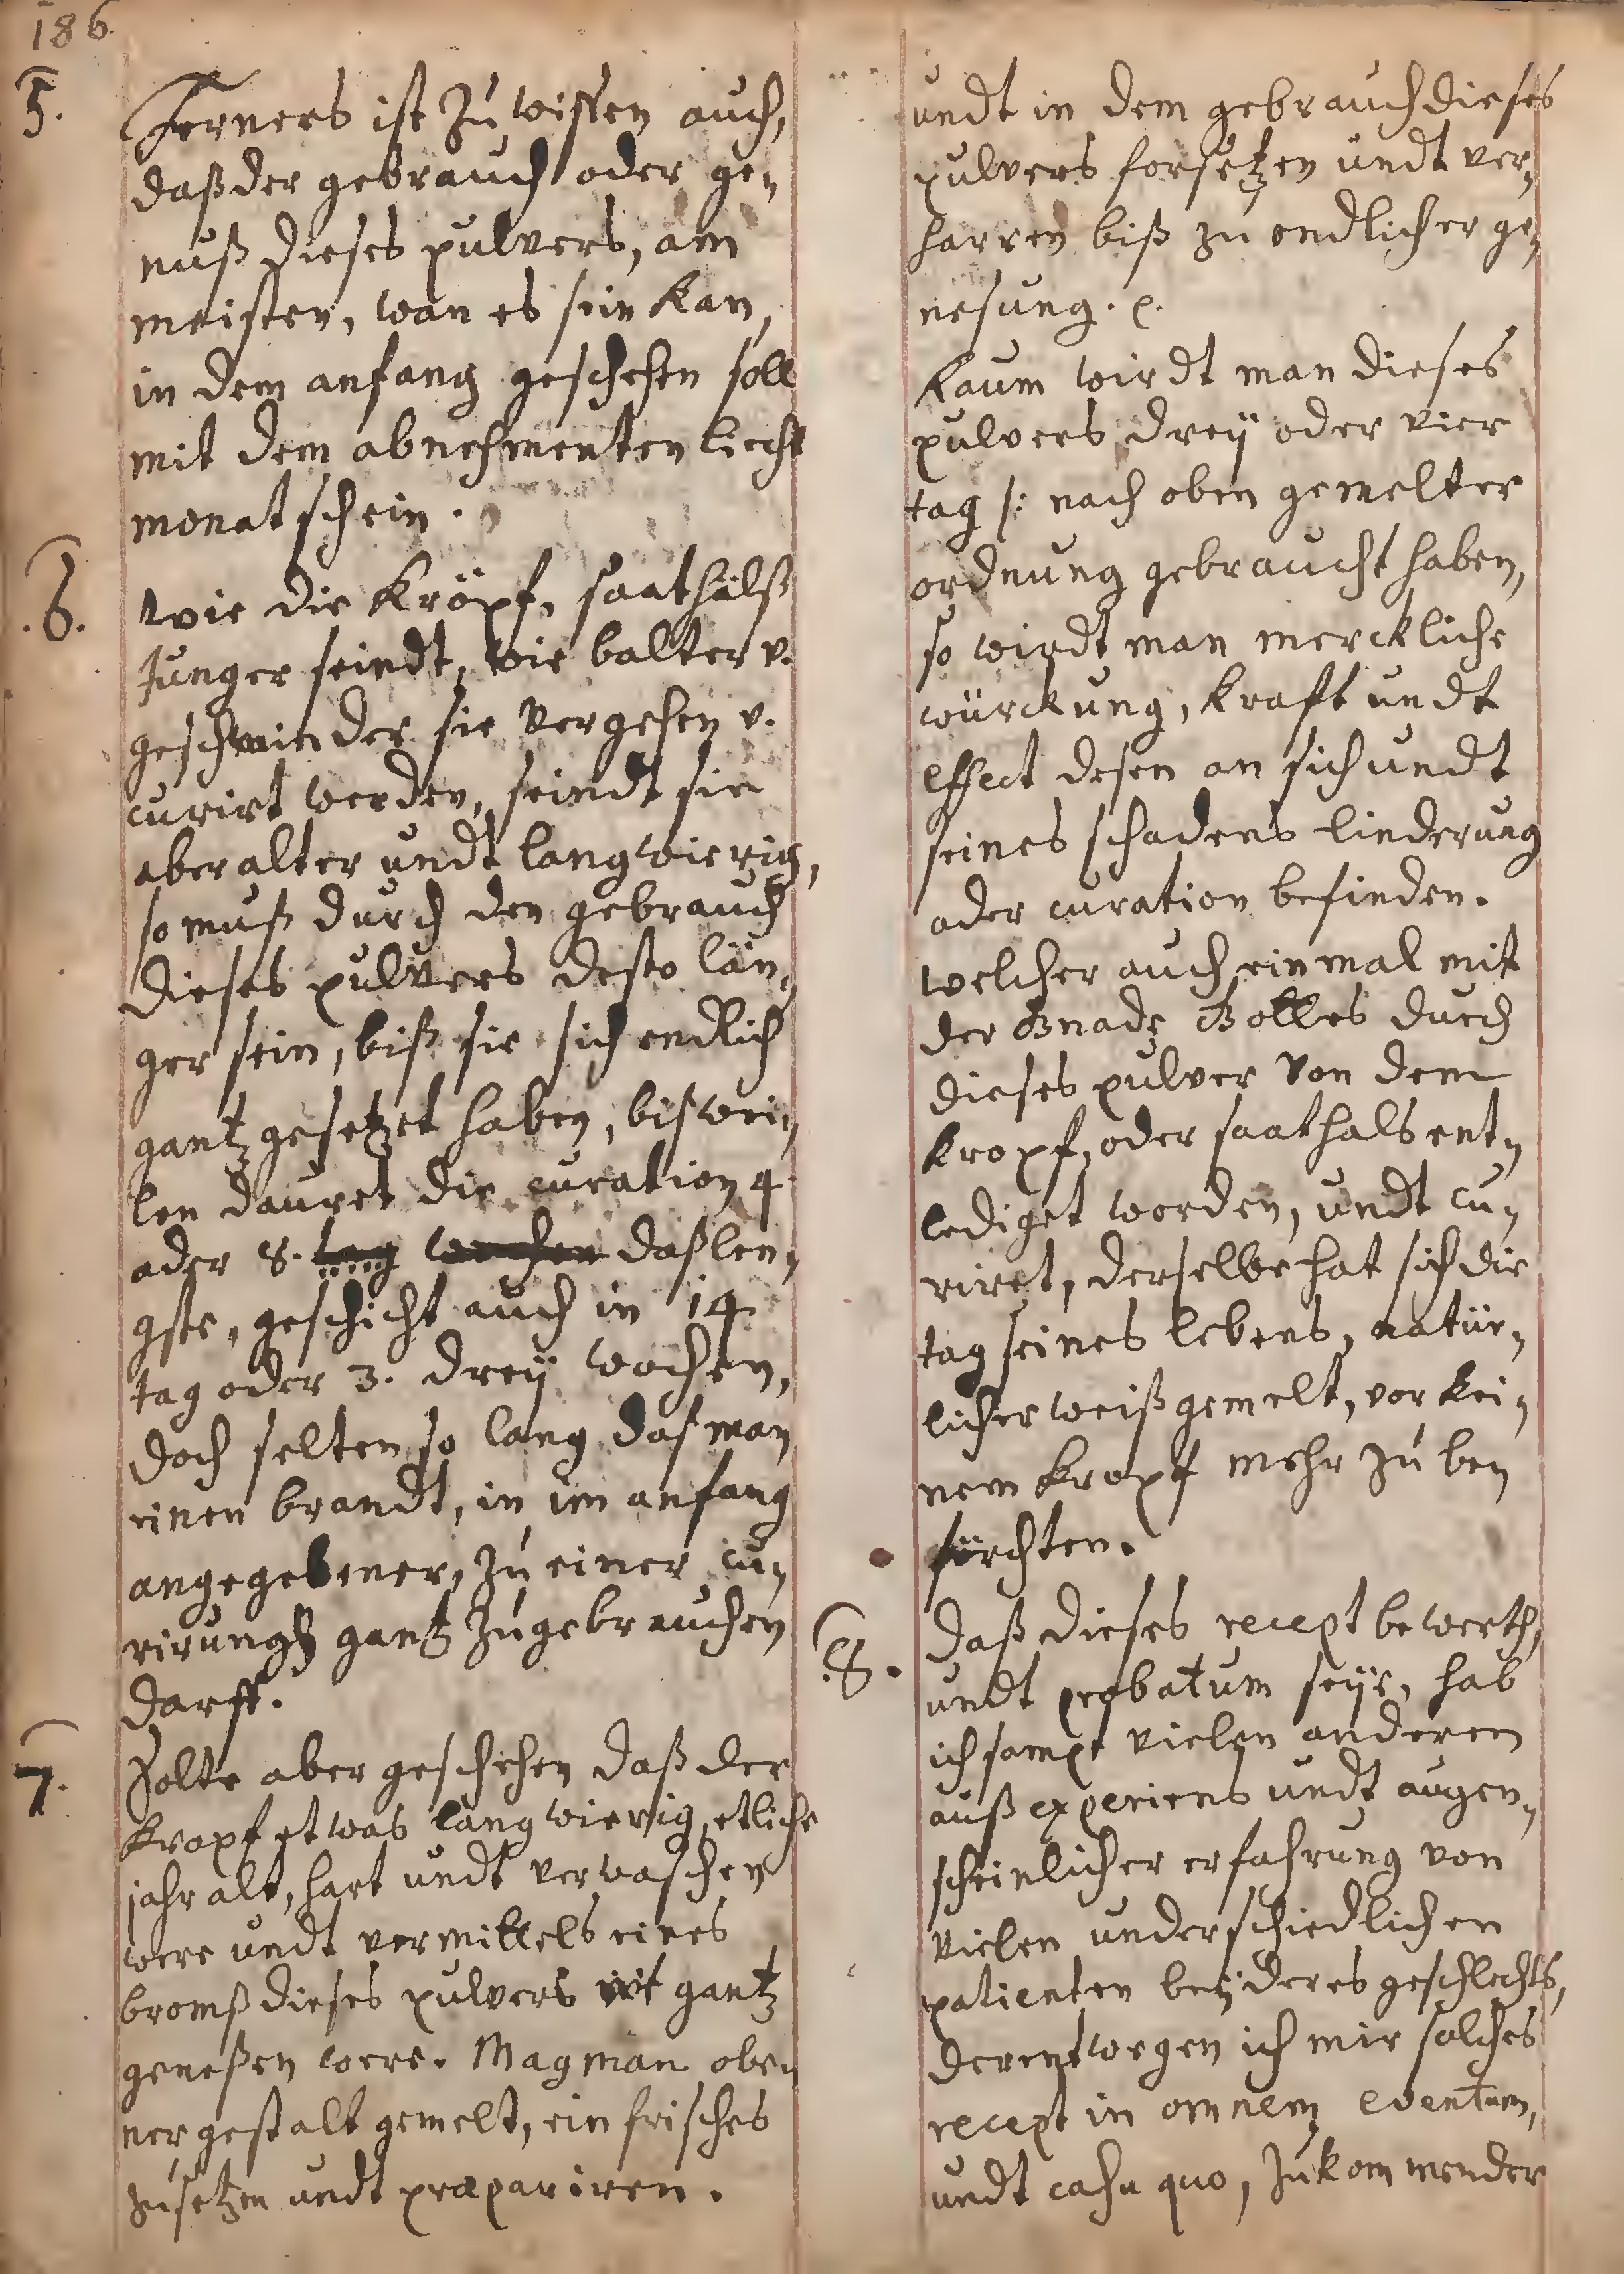 186.
5.
Ferners ist zu wissen auch,
daß der gebrauch oder ge,
nuß dieses pulvers, am
meisten, wan es sein kan,
in dem anfang geschehen soll
mit dem abnehmenten liecht
monatschein.
.6.
wie die kröpf, saathälß
Junger seindt, wie balter v.
geschwinder sie vergehen v.
curirt werden, seindt sie
aber alter undt langwierig,
so muß durch den gebrauch
dieses pulvers desto län,
ger sein, biß sie sich endlich
gantz gesetzet haben, biswei,
len dauret die curation 4
oder 8. tag wochen daß len,
gste, geschicht auch in 14
tag oder 3. dreÿ wochen,
doch selten so lang daß man
einen brandt, in im anfang
angegebener, zu einer cu,
rirung gantz zugebrauchen
darff.
7.
Solte aber geschehen daß der
kropf etwas langwierig, etliche
jahr alt, hart undt verwaschen
were undt vermittels eines
bromß dieses pulvers nit gantz
geneßen were. Mag man obe,
ner gestalt gemelt, ein frisches
zusetzen undt præpariren.
undt in dem gebrauch dieses
pulvers forsetzen undt ver,
harren biß zu endlicher ge,
nesung. p.
kaum wirdt man dieses
pulvers dreÿ oder vier
tag /: nach oben gemelter
ordnung gebraucht haben,
so wirdt man merckliche
würckung, kraft undt
effect desen an sich undt
seines schadens linderung
oder curation befinden.
welcher auch einmal mit
der Gnade Gottes durch
dieses pulver von dem
kropf, oder saathals ent,
lediget worden, undt cu,
riret, derselbe hat sich die
tag seines lebens, natür,
licher weiß gemelt, vor kei,
nem kropf mehr zu be,
förchten.
.8.
Daß dieses recept bewerth,
undt probatum seÿe, hab
ich sampt vielen anderen
auß experiens undt augen,
scheinlicher erfahrung von
vielen underschiedlichen
patienten beÿderes geschlechts,
derentwegen ich mir solches
recept in omnem eventum,
undt casu quo, zukommender